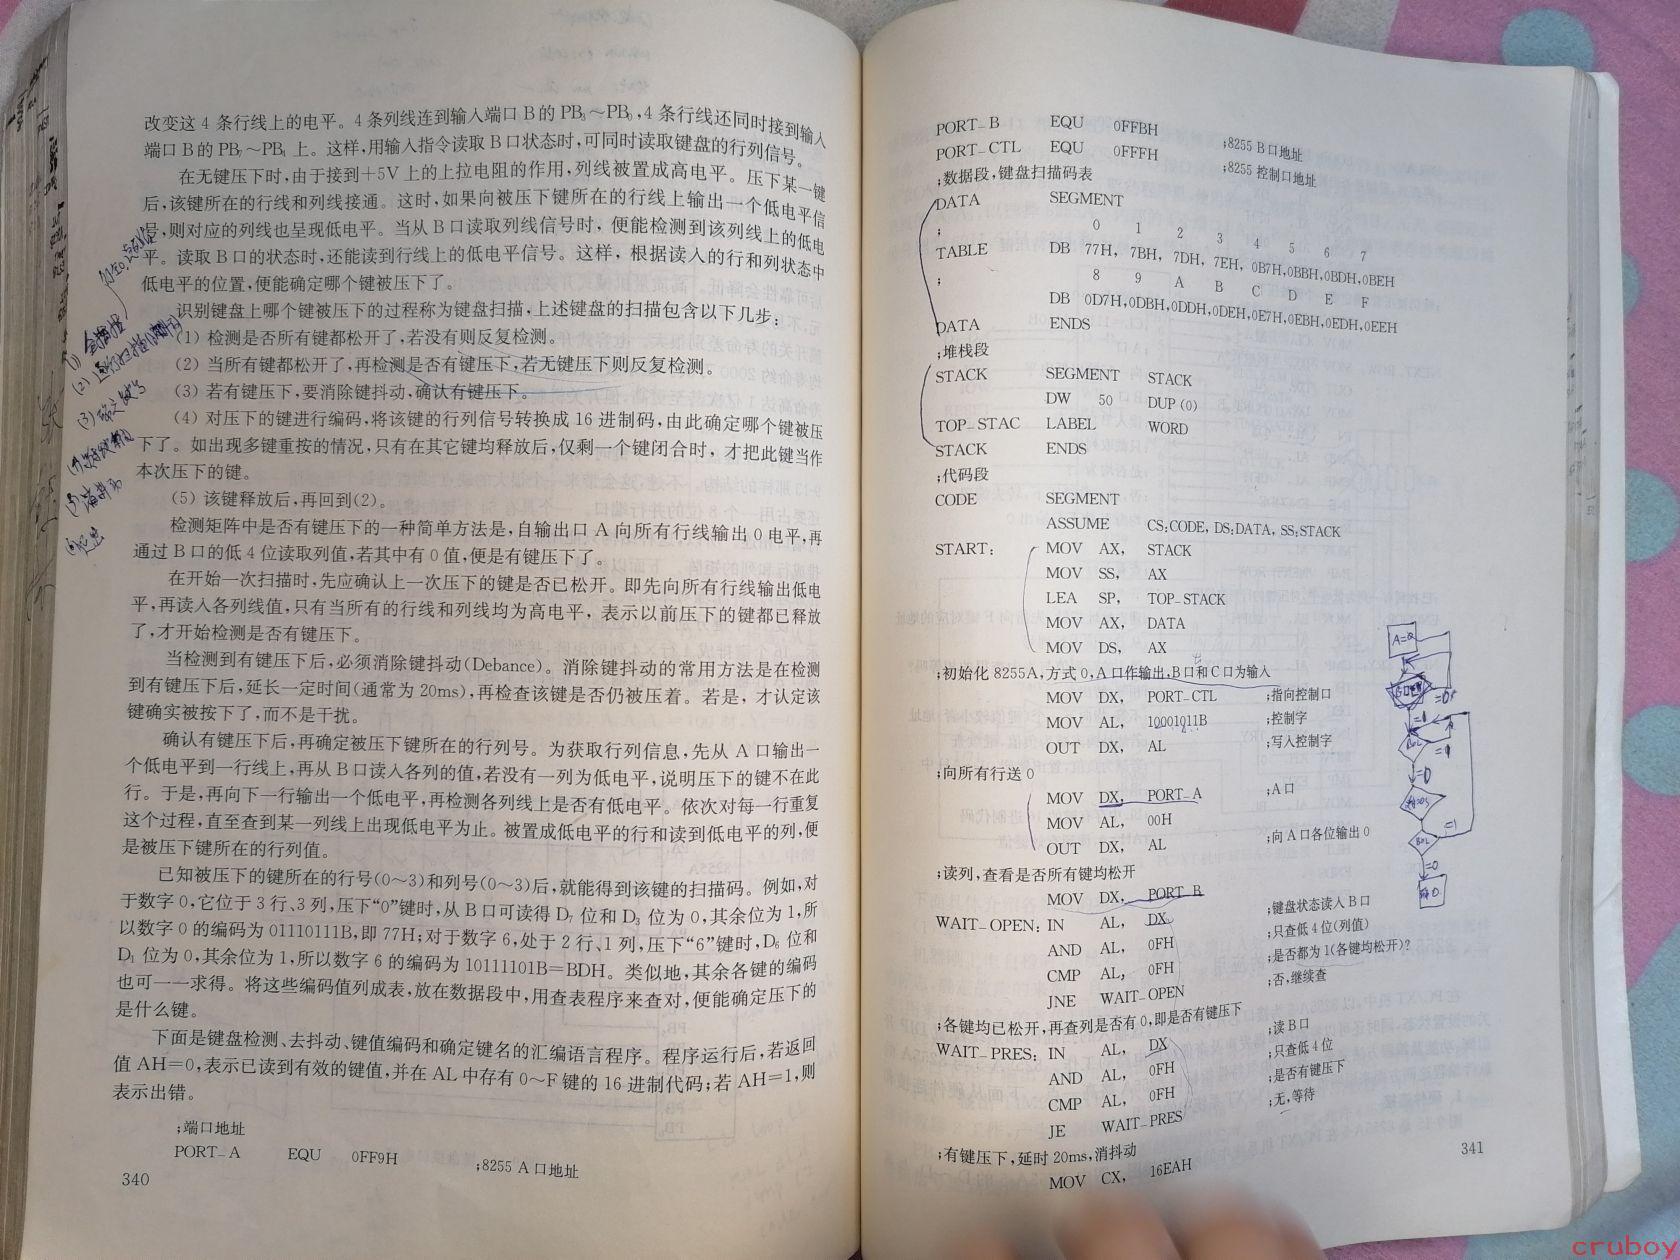 改变这4条行线上的电平。4条列线连到输入端口B的PB₃～PB₀,4条行线还同时接到输入
端口B的PB₇～PB₄上。这样,用输入指令读取B口状态时,可同时读取键盘的行列信号。
在无键压下时,由于接到+5V上的上拉电阻的作用,列线被置成高电平。压下某一键
后,该键所在的行线和列线接通。这时,如果向被压下键所在的行线上输出一个低电平信
号,则对应的列线也呈现低电平。当从B口读取列线信号时,便能检测到该列线上的低电
平。读取B口的状态时,还能读到行线上的低电平信号。这样,根据读入的行和列状态中
低电平的位置,便能确定哪个键被压下了。
识别键盘上哪个键被压下的过程称为键盘扫描,上述键盘的扫描包含以下几步:
(1) 检测是否所有键都松开了,若没有则反复检测。
(2) 当所有键都松开了,再检测是否有键压下,若无键压下则反复检测。
(3) 若有键压下,要消除键抖动,确认有键压下。
(4) 对压下的键进行编码,将该键的行列信号转换成16进制码,由此确定哪个键被压
下了。如出现多键重按的情况,只有在其它键均释放后,仅剩一个键闭合时,才把此键当作
本次压下的键。
(5) 该键释放后,再回到(2)。
检测矩阵中是否有键压下的一种简单方法是,自输出口A向所有行线输出0电平,再
通过B口的低4位读取列值,若其中有0值,便是有键压下了。
在开始一次扫描时,先应确认上一次压下的键是否已松开。即先向所有行线输出低电
平,再读入各列线值,只有当所有的行线和列线均为高电平,表示以前压下的键都已释放
了,才开始检测是否有键压下。
当检测到有键压下后,必须消除键抖动(Debance)。消除键抖动的常用方法是在检测
到有键压下后,延长一定时间(通常为20ms),再检查该键是否仍被压着。若是,才认定该
键确实被按下了,而不是干扰。
确认有键压下后,再确定被压下键所在的行列号。为获取行列信息,先从A口输出一
个低电平到一行线上,再从B口读入各列的值,若没有一列为低电平,说明压下的键不在此
行。于是,再向下一行输出一个低电平,再检测各列线上是否有低电平。依次对每一行重复
这个过程,直至查到某一列线上出现低电平为止。被置成低电平的行和读到低电平的列,便
是被压下键所在的行列值。
已知被压下的键所在的行号(0～3)和列号(0～3)后,就能得到该键的扫描码。例如,对
于数字0,它位于3行、3列,压下“0”键时,从B口可读得D₇位和D₃位为0,其余位为1,所
以数字0的编码为01110111B,即77H;对于数字6,处于2行、1列,压下“6”键时,D₆位和
D₁位为0,其余位为1,所以数字6的编码为10111101B=BDH。类似地,其余各键的编码
也可一一求得。将这些编码值列成表,放在数据段中,用查表程序来查对,便能确定压下的
是什么键。
下面是键盘检测、去抖动、键值编码和确定键名的汇编语言程序。程序运行后,若返回
值AH=0,表示已读到有效的键值,并在AL中存有0～F键的16进制代码;若AH=1,则
表示出错。
;端口地址
PORT_A EQU 0FF9H ;8255 A口地址
340
PORT_B EQU 0FFBH ;8255 B口地址
PORT_CTL EQU 0FFFH ;8255 控制口地址
;数据段,键盘扫描码表
DATA SEGMENT
; 0 1 2 3 4 5 6 7
TABLE DB 77H, 7BH, 7DH, 7EH, 0B7H,0BBH,0BDH,0BEH
; 8 9 A B C D E F
DB 0D7H,0DBH,0DDH,0DEH,0E7H,0EBH,0EDH,0EEH
DATA ENDS
;堆栈段
STACK SEGMENT STACK
DW 50 DUP(0)
TOP_STAC LABEL WORD
STACK ENDS
;代码段
CODE SEGMENT
ASSUME CS:CODE, DS:DATA, SS:STACK
START: MOV AX, STACK
MOV SS, AX
LEA SP, TOP_STACK
MOV AX, DATA
MOV DS, AX
;初始化8255A,方式0,A口作输出,B口和C口为输入
MOV DX, PORT_CTL ;指向控制口
MOV AL, 10001011B ;控制字
OUT DX, AL ;写入控制字
;向所有行送0
MOV DX, PORT_A ;A口
MOV AL, 00H
OUT DX, AL ;向A口各位输出0
;读列,查看是否所有键均松开
MOV DX, PORT_B ;键盘状态读入B口
WAIT_OPEN: IN AL, DX ;只查低4位(列值)
AND AL, 0FH ;是否都为1(各键均松开)?
CMP AL, 0FH ;否,继续查
JNE WAIT_OPEN
;各键均已松开,再查列是否有0,即是否有键压下
WAIT_PRES: IN AL, DX ;读B口
AND AL, 0FH ;只查低4位
CMP AL, 0FH ;是否有键压下
JE WAIT_PRES ;无,等待
;有键压下,延时20ms,消抖动
MOV CX, 16EAH
341
A=0
cruboy